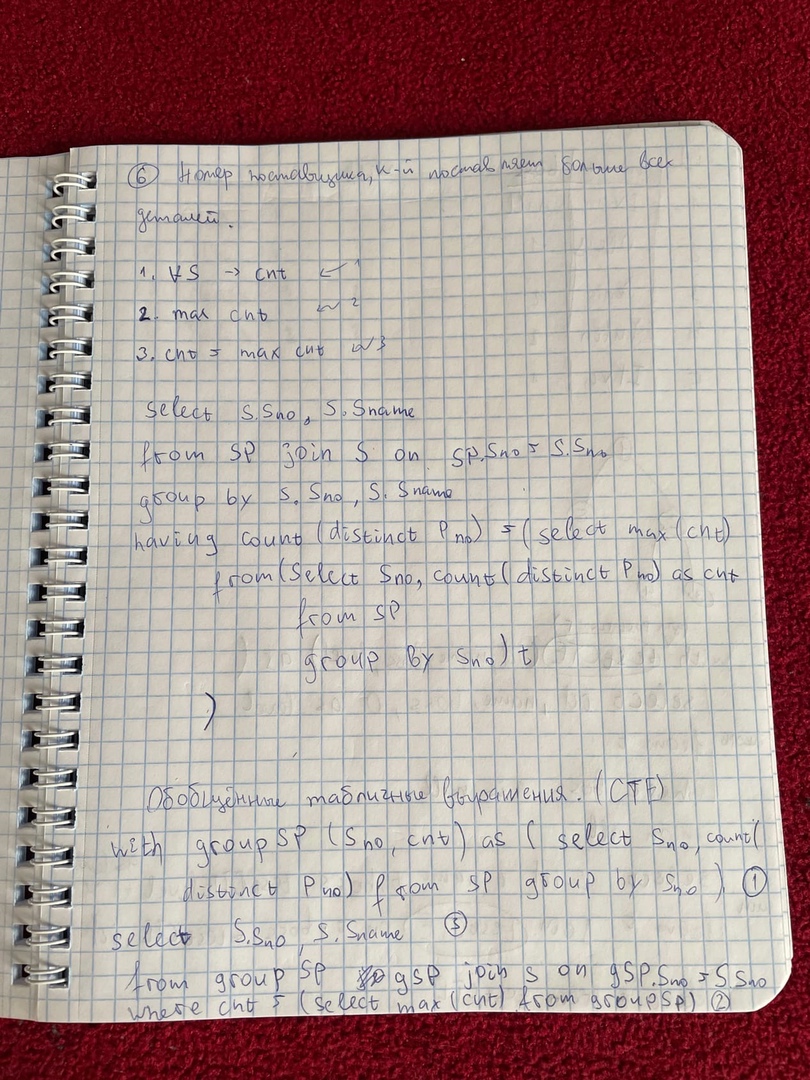 ⑥ Номер поставщика, к-й поставляет больше всех
деталей.
1. ∀S → cnt ↙ 1
2. max cnt ↙ 2
3. cnt = max cnt ↙ 3
select S.Sno, S.Sname
from SP join S on SP.Sno = S.Sno
group by S.Sno, S.Sname
having count (distinct Pno) = (select max (cnt)
from (Select Sno, count (distinct Pno) as cnt
from SP
group by Sno) t
)
Обобщённые табличные выражения. (CTE)
with groupSP (Sno, cnt) as ( select Sno, count(
distinct Pno) from SP group by Sno ) ①
select S.Sno, S.Sname ③
from groupSP gSP join S on gSP.Sno = S.Sno
where cnt = (select max (cnt) from groupSP) ②